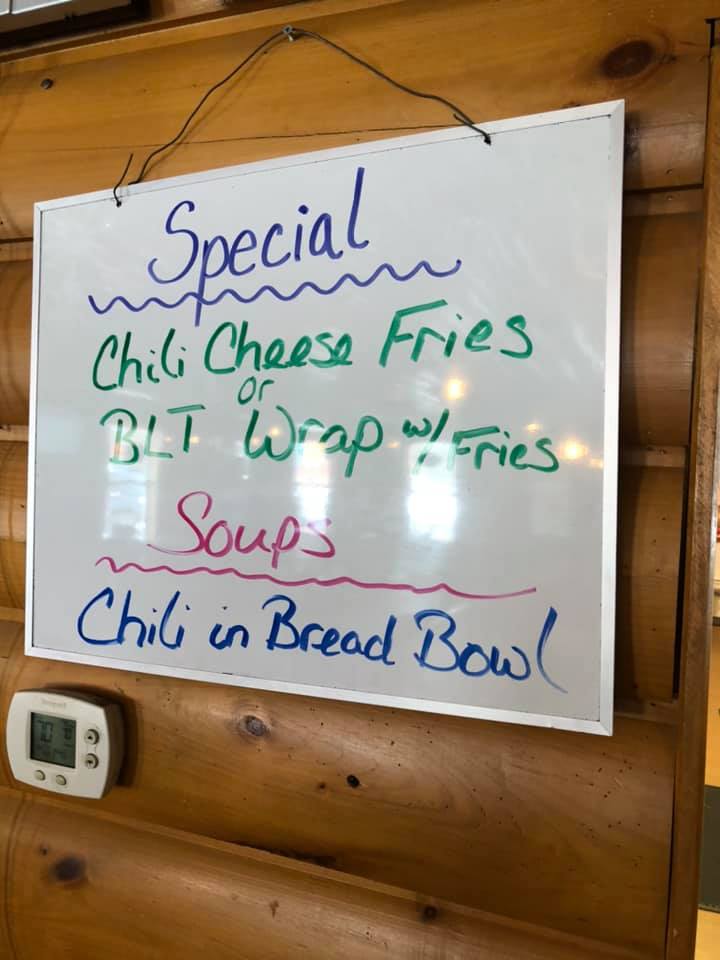 Special
Chili Cheese Fries
or
BLT Wrap w/Fries
Soups
Chili in Bread Bowl